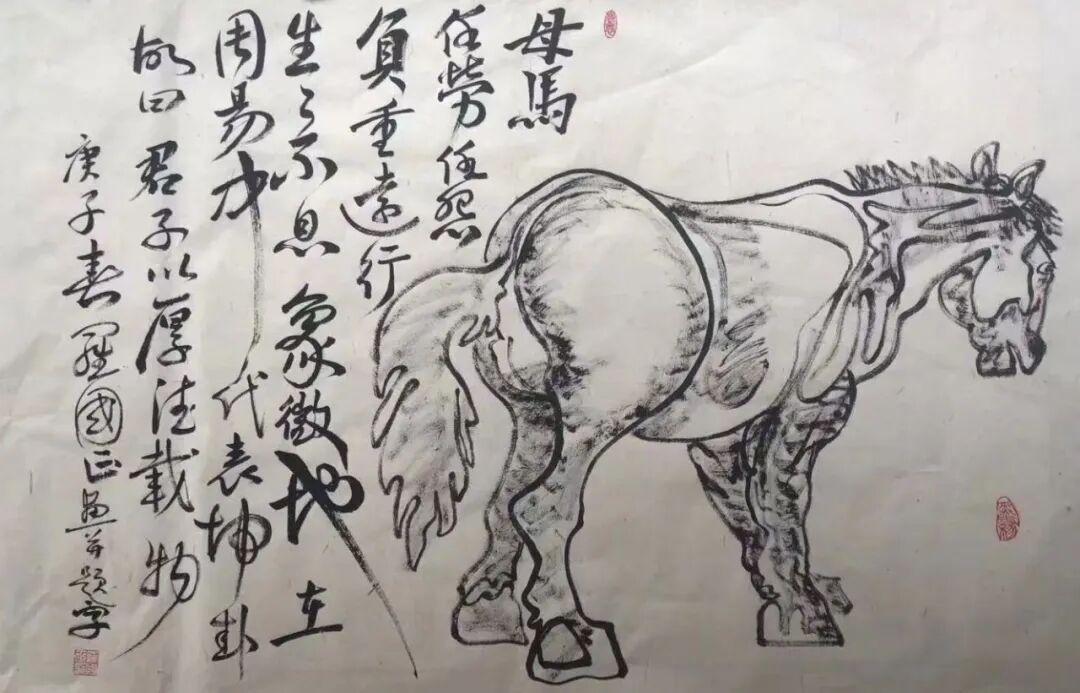 母馬
任勞任怨
負重遠行
生生不息 象徵地 在
周易中 代表坤卦
故曰 君子以厚德載物
庚子春 羅國正畫并題字